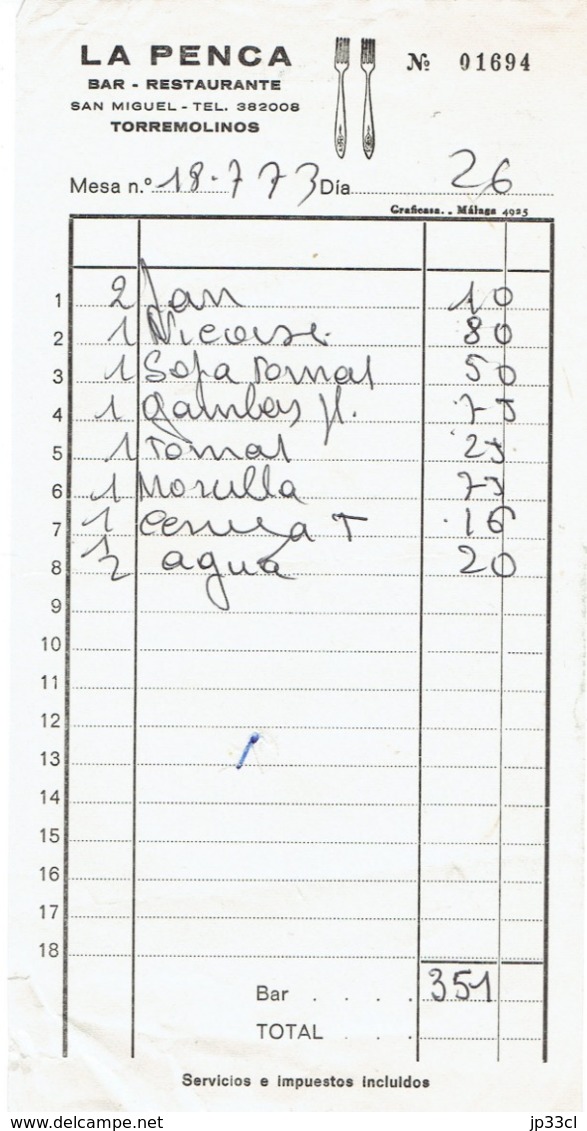 LA PENCA
BAR - RESTAURANTE
SAN MIGUEL - TEL. 382008
TORREMOLINOS
Nº 01694
Mesa n.º 18-7 73 Día 26
Graficasa.. Málaga 4925
1 2 Pan 10
2 1 Nicoise 80
3 1 Sopa Tomat 50
4 1 Gambas pl. 75
5 1 Tomat 25
6 1 Morcilla 75
7 1 Cerveza T 16
8 1/2 agua 20
9
10
11
12
13
14
15
16
17
18
Bar . . . . 351
TOTAL . . .
Servicios e impuestos incluidos
delcampe.net
jp33cl